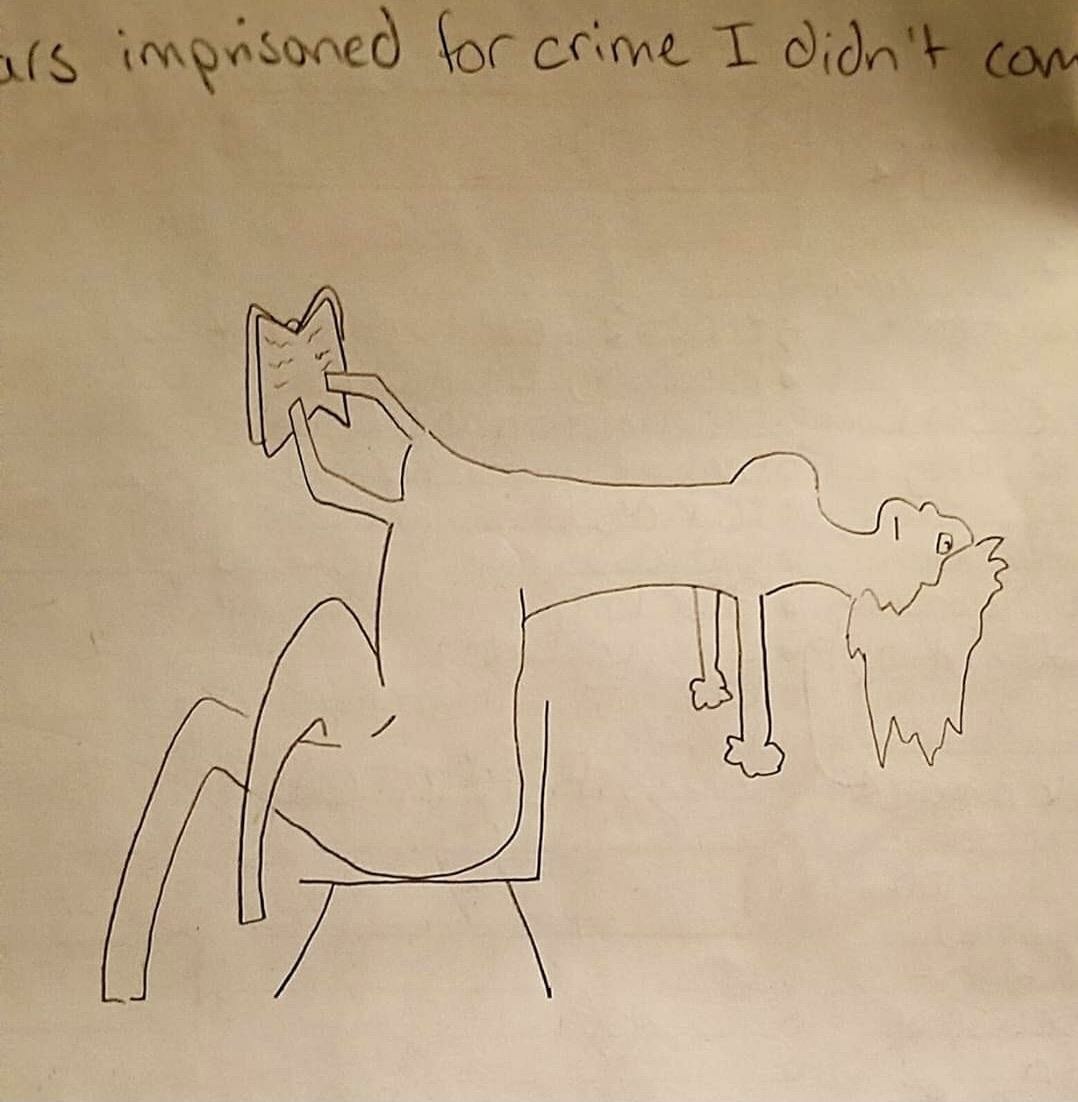 ars imprisoned for crime I didn't com